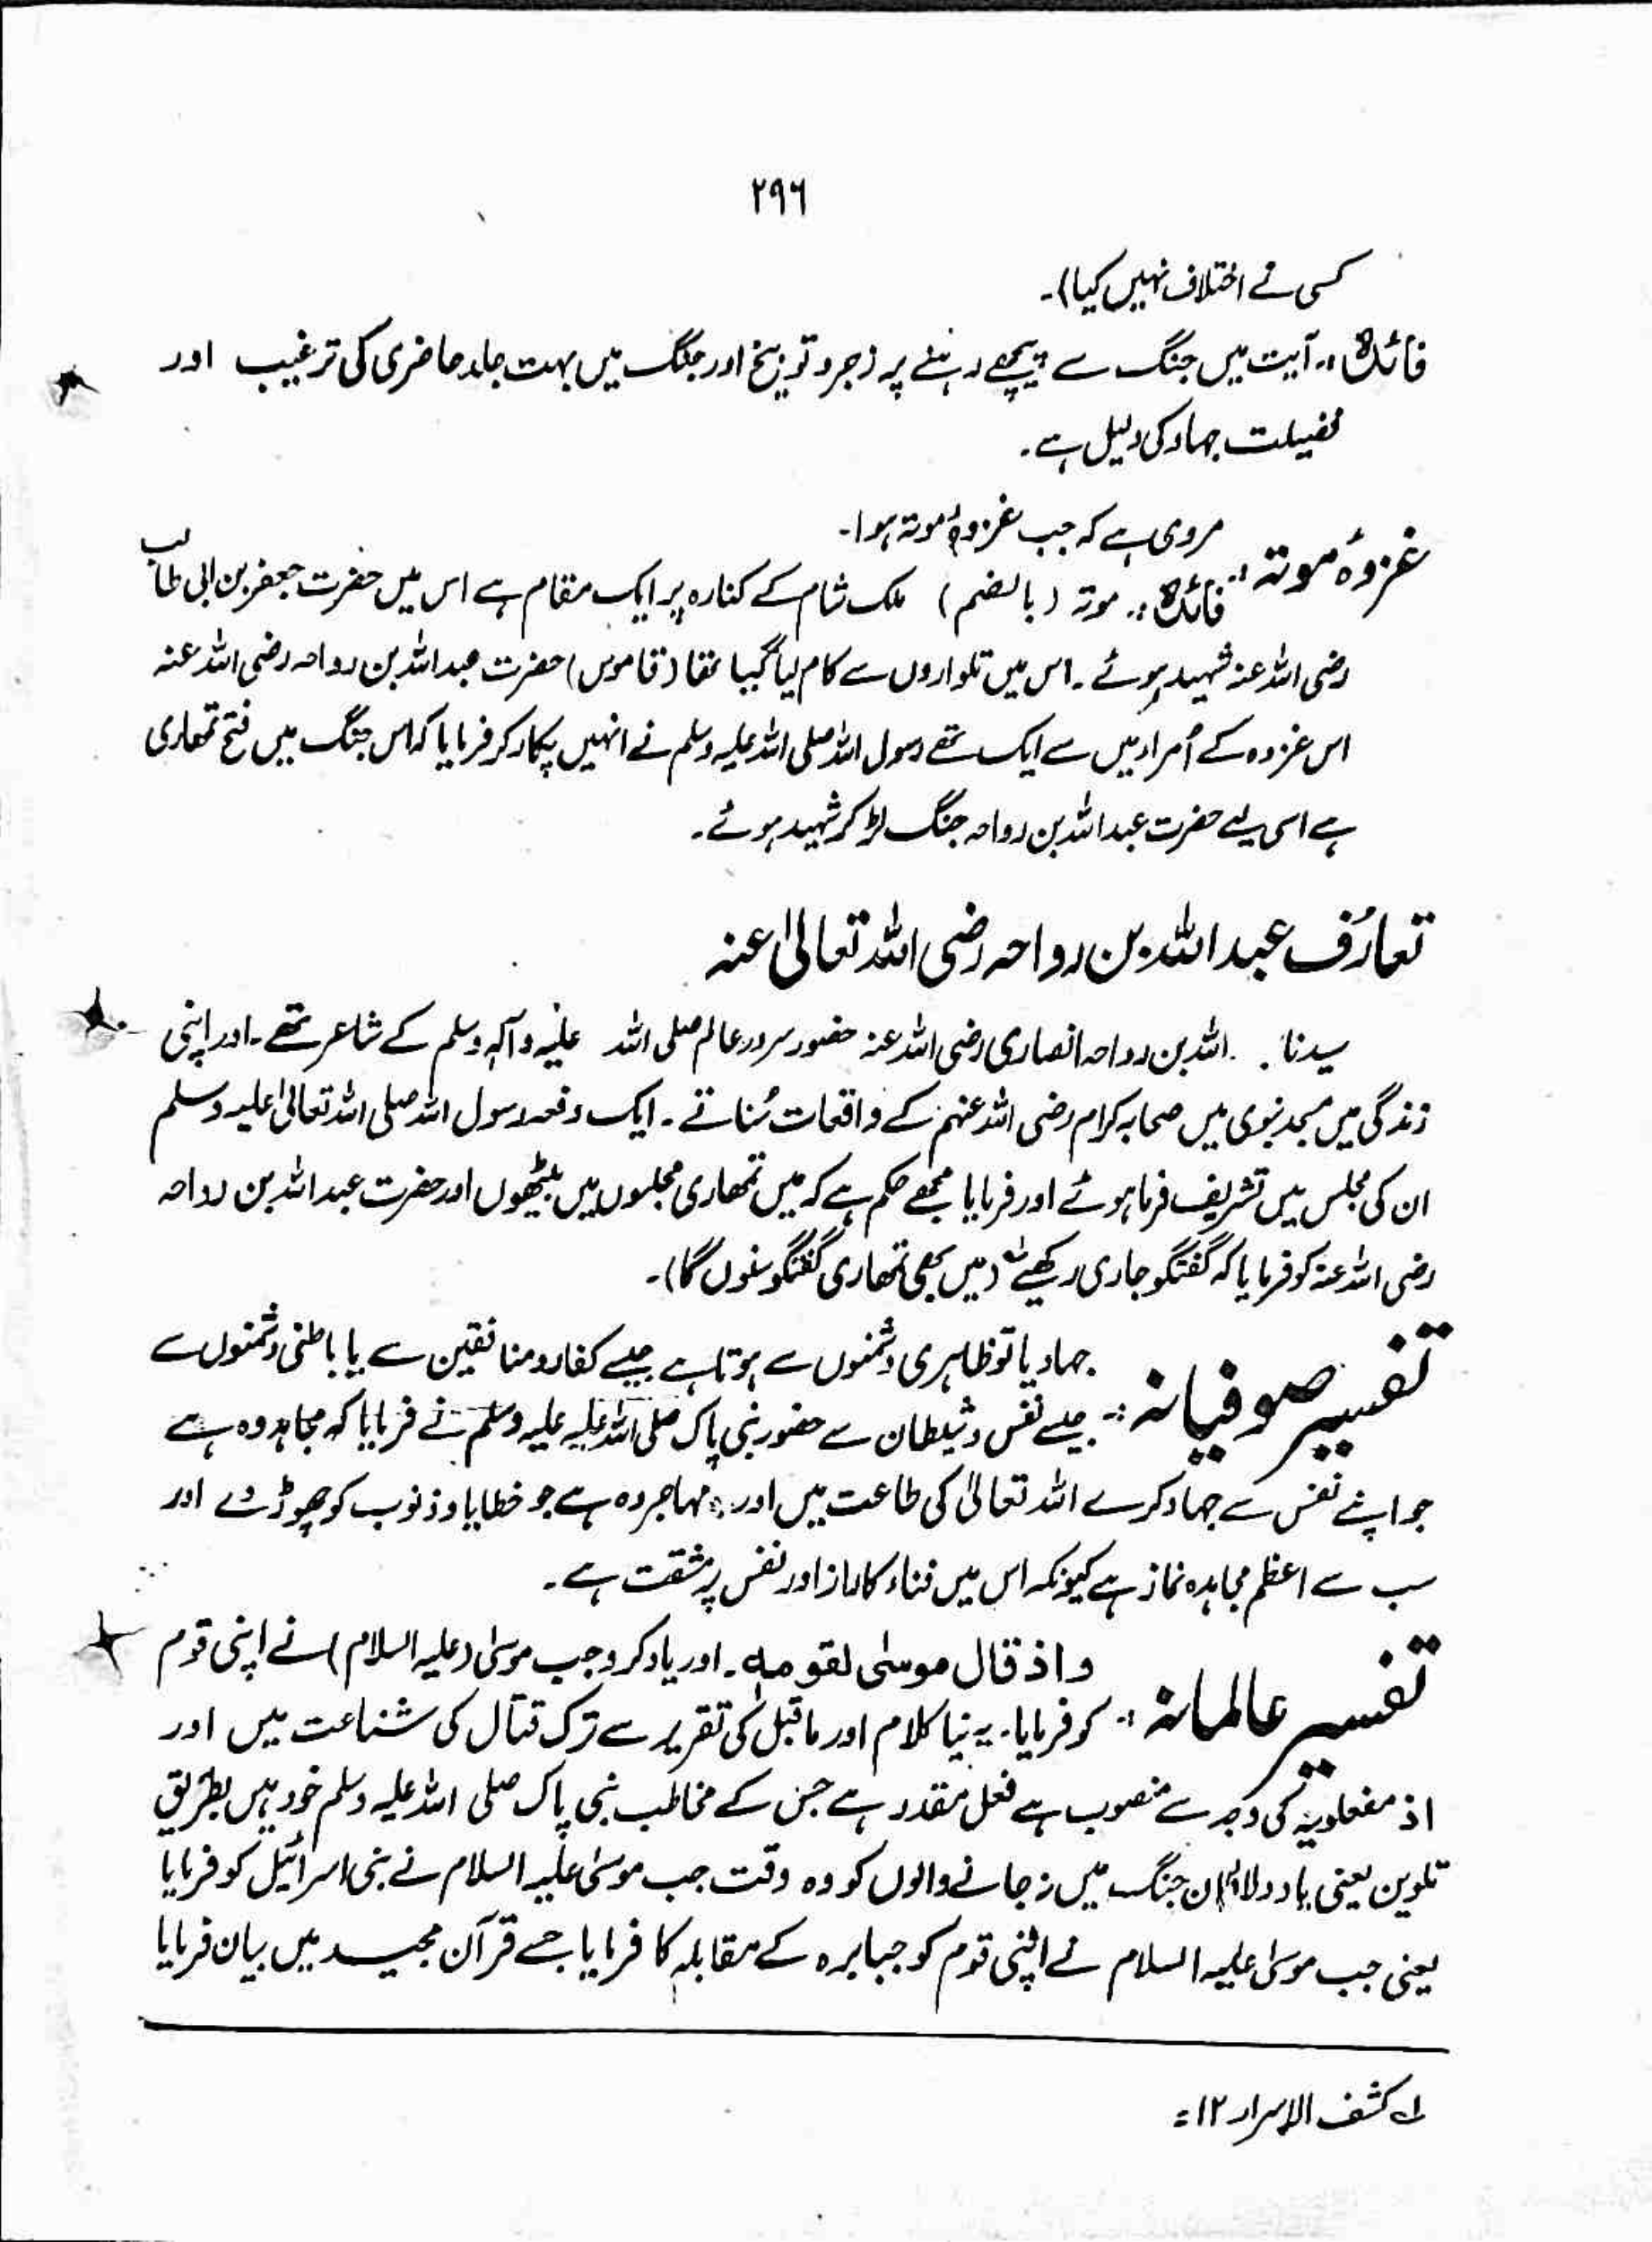 ۲۹۶
کسی نے اختلاف نہیں کیا)۔
فائدہ :۔ آیت میں جنگ سے پیچھے رہنے پر زجر و توبیخ اور جنگ میں بہت جلد حاضری کی ترغیب اور
فضیلت جہاد کی دلیل ہے۔
مروی ہے کہ جب غزوۂ موتہ ہوا۔
غزوۂ موتہ :۔
فائدہ :۔ موتہ (بالضم) ملک شام کے کنارہ پر ایک مقام ہے اس میں حضرت جعفر بن ابی طالب
رضی اللہ عنہ شہید ہوئے ۔ اس میں تلواروں سے کام لیا گیا تھا (قاموس) حضرت عبداللہ بن رواحہ رضی اللہ عنہ
اس غزوہ کے اُمراء میں سے ایک تھے رسول اللہ صلی اللہ علیہ وسلم نے انہیں پکار کر فرمایا کہ اس جنگ میں فتح تمھاری
ہے اسی لیے حضرت عبداللہ بن رواحہ جنگ لڑ کر شہید ہوئے ۔
تعارُف عبداللہ بن رواحہ رضی اللہ تعالیٰ عنہ
سیدنا اللہ بن رواحہ انصاری رضی اللہ عنہ حضور سرور عالم صلی اللہ علیہ وآلہ وسلم کے شاعر تھے ۔ اور اپنی
زندگی میں مسجد نبوی میں صحابہ کرام رضی اللہ عنہم کے واقعات سُناتے ۔ ایک دفعہ رسول اللہ صلی اللہ تعالیٰ علیہ وسلم
ان کی مجلس میں تشریف فرما ہوئے اور فرمایا مجھے حکم ہے کہ میں تمھاری مجلسوں میں بیٹھوں اور حضرت عبداللہ بن رواحہ
رضی اللہ عنہ کو فرمایا کہ گفتگو جاری رکھیئے (میں بھی تمھاری گفتگو سنوں گا)۔
جہاد یا تو ظاہری دشمنوں سے ہوتا ہے جیسے کفار و منافقین سے یا باطنی دشمنوں سے
تفسیر صوفیانہ :۔ جیسے نفس و شیطان سے حضور نبی پاک صلی اللہ علیہ علیہ وسلم نے فرمایا کہ مجاہد وہ ہے
جو اپنے نفس سے جہاد کرے اللہ تعالیٰ کی طاعت میں اور مہاجر وہ ہے جو خطایا و ذنوب کو چھوڑ دے اور
سب سے اعظم مجاہدہ نماز ہے کیونکہ اس میں فناء کا راز اور نفس پر مشقت ہے ۔
واذ قال موسٰی لقومہ ۔ اور یاد کرو جب موسیٰ (علیہ السلام) نے اپنی قوم
تفسیر عالمانہ :۔ کو فرمایا ۔ یہ نیا کلام اور ماقبل کی تقریر سے ترک قتال کی شناعت میں اور
اذ مفعولیۃ کی وجہ سے منصوب ہے فعل مقدر ہے جس کے مخاطب نبی پاک صلی اللہ علیہ وسلم خود ہیں بطریق
تلوین یعنی یاد دلائیے ان جنگ میں نہ جانے والوں کو وہ وقت جب موسیٰ علیہ السلام نے بنی اسرائیل کو فرمایا
یعنی جب موسیٰ علیہ السلام نے اپنی قوم کو جبابرہ کے مقابلہ کا فرمایا جسے قرآن مجید میں بیان فرمایا
لہ کشف الاسرار ۱۲ =